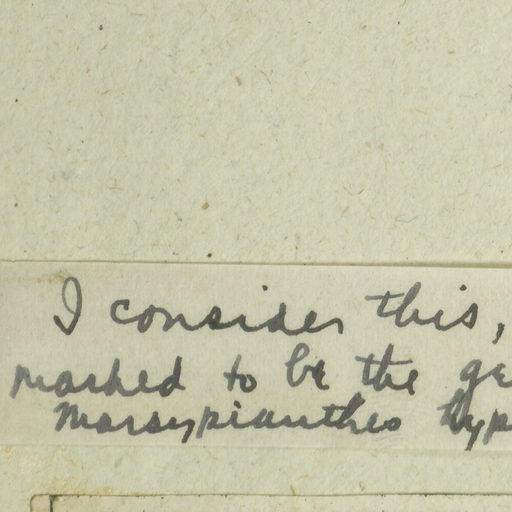 I consider this,
marked to be the ge
Marsypianthes hyp